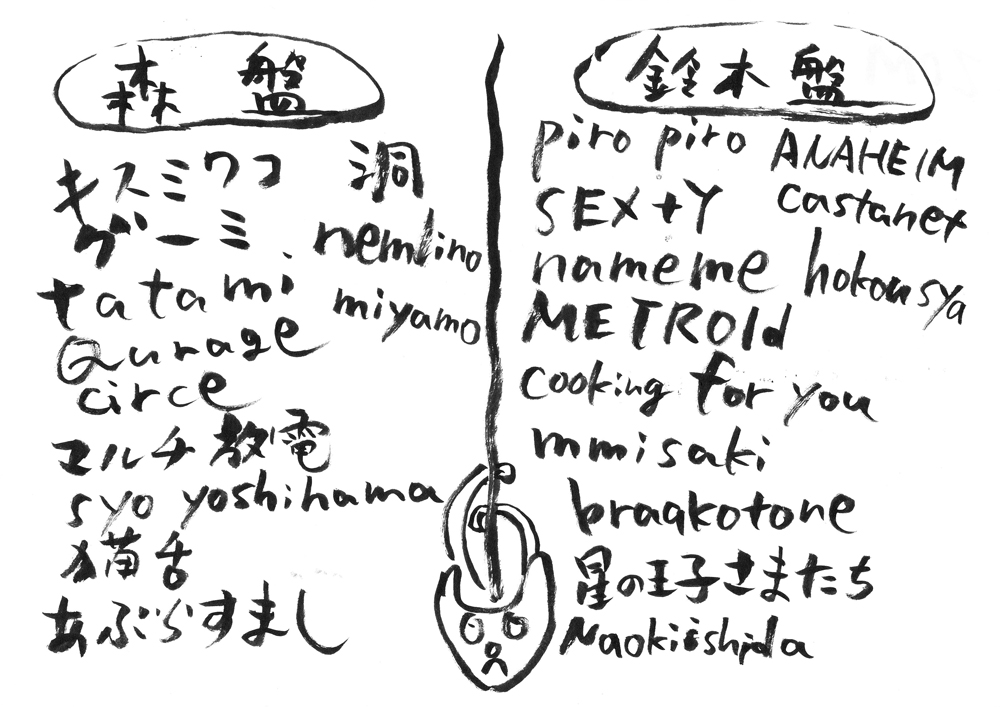 森盤
キスミワコ
グーミ
tatami
Qurage
circe
マルチ放電
syo yoshihama
猫舌
あぶらすまし
洞
nemlino
miyamo
鈴木盤
piro piro
SEX+Y
nameme
METROId
cooking for you
mmisaki
braqkotone
星の王子さまたち
Naokiishida
ANAHEIM
castanet
hokousya